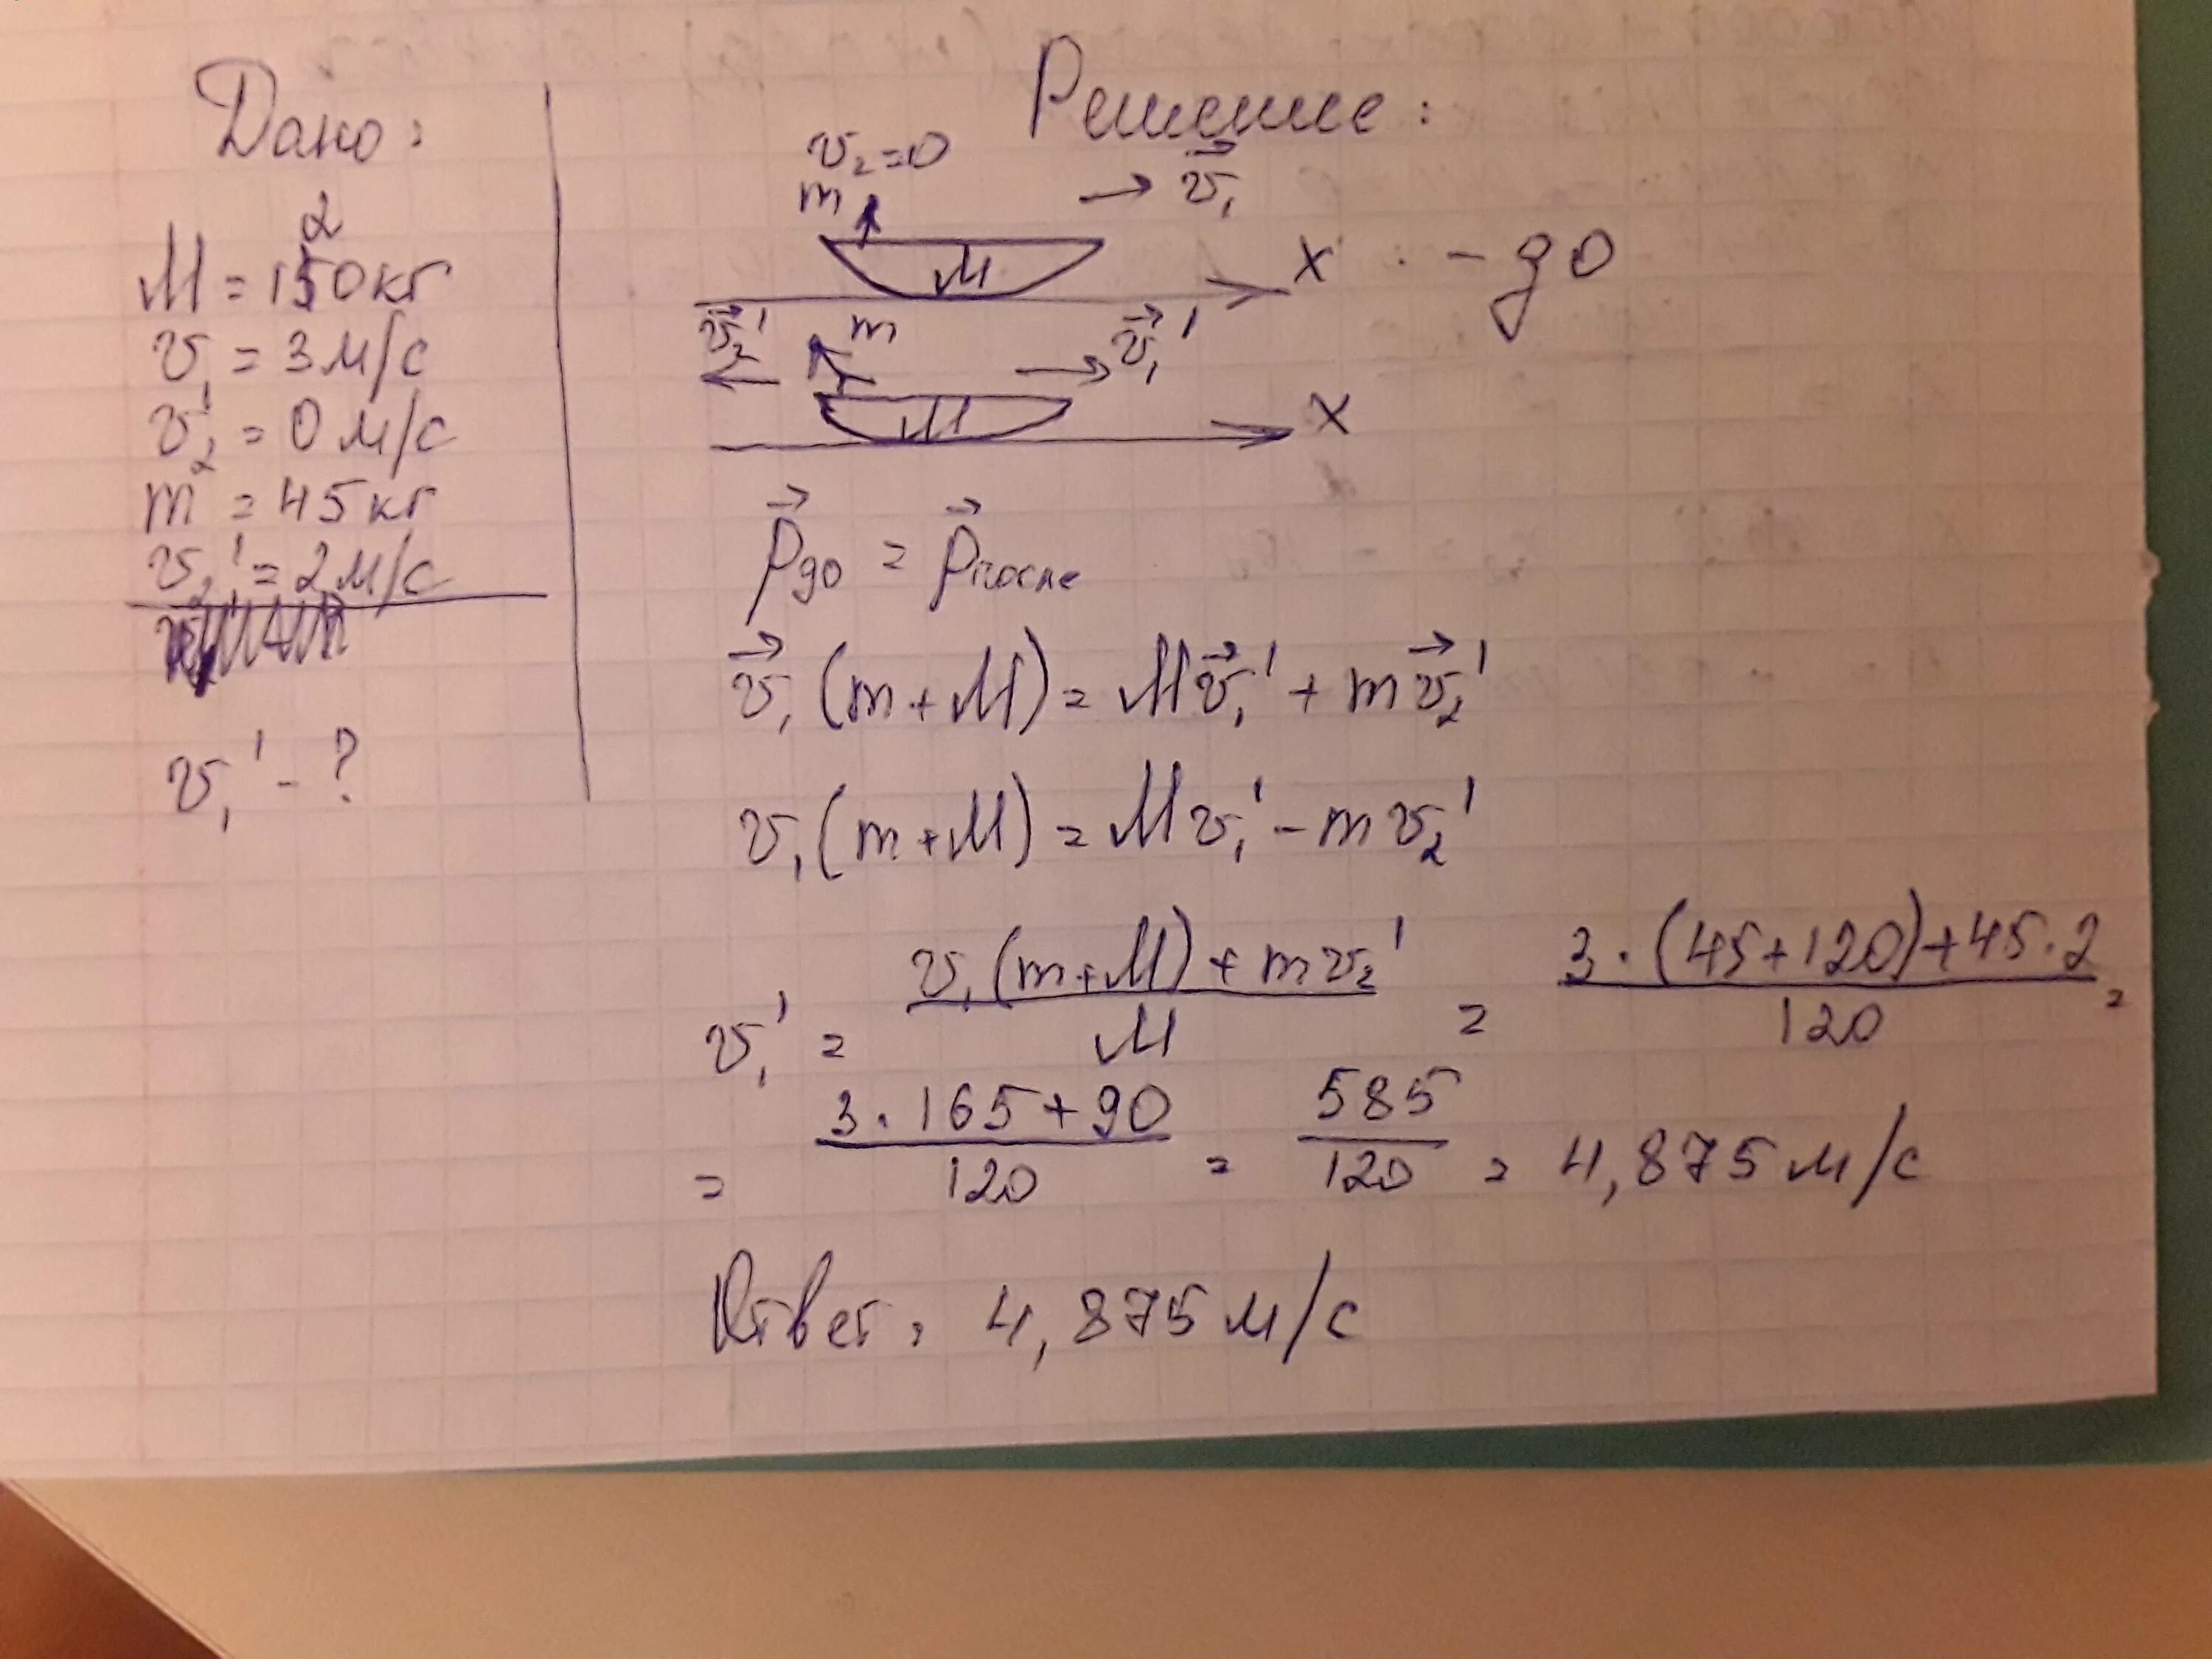 Дано:
M = 120кг
v₁ = 3м/с
v₂ = 0 м/с
m = 45кг
v₂' = 2м/с
v₁' - ?
Решение:
v₂=0
m
v₁
M
X - до
v₂' m v₁'
M
X
pдо = pпосле
v₁(m+M) = Mv₁' + mv₂'
v₁(m+M) = Mv₁' - mv₂'
v₁' = v₁(m+M)+mv₂' / M = 3·(45+120)+45·2 / 120 =
= 3·165+90 / 120 = 585 / 120 = 4,875 м/с
Ответ: 4,875 м/с